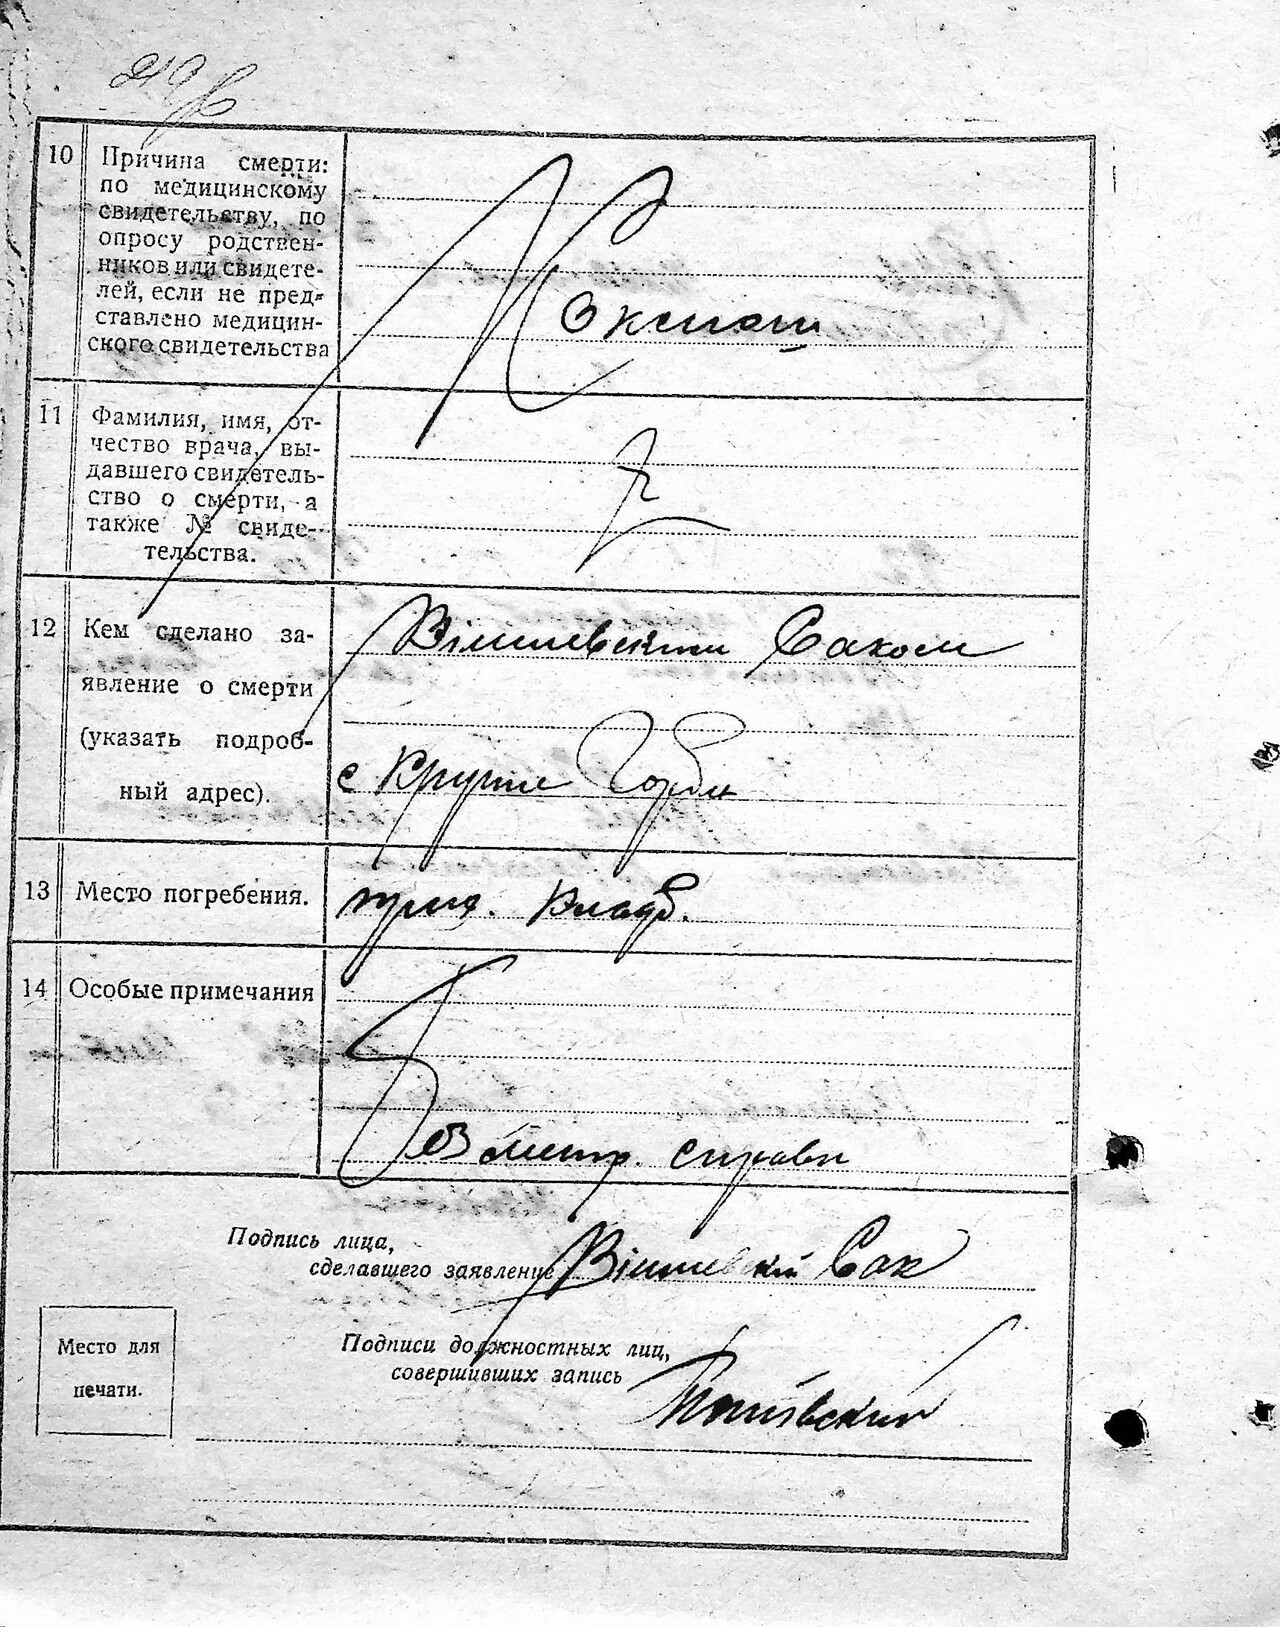 10 Причина смерти:
по медицинскому
свидетельству, по
опросу родствен-
ников или свидете-
лей, если не пред-
ставлено медицин-
ского свидетельства
Коклюш
11 Фамилия, имя, от-
чество врача, вы-
давшего свидетель-
ство о смерти, а
также № свиде-
тельства.
12 Кем сделано за-
явление о смерти
(указать подроб-
ный адрес).
Вішневским Саком
с Круты Горби
13 Место погребения.
14 Особые примечания
справи
Подпись лица,
сделавшего заявление Вішневский Сак
Подписи должностных лиц,
совершивших запись
Место для
печати.